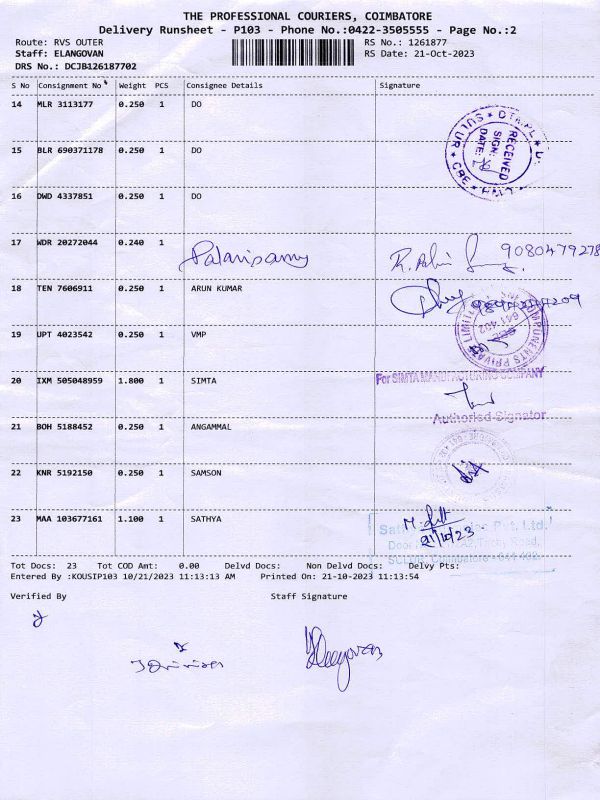 THE PROFESSIONAL COURIERS, COIMBATORE
Delivery Runsheet - P103 - Phone No.:0422-3505555 - Page No.:2
Route: RVS OUTER RS No.: 1261877
Staff: ELANGOVAN RS Date: 21-Oct-2023
DRS No.: DCJB126187702
S No Consignment No Weight PCS Consignee Details Signature
14 MLR 3113177 0.250 1 DO
RECEIVED
SIGN:
DATE:
15 BLR 690371178 0.250 1 DO
16 DWD 4337851 0.250 1 DO
17 WDR 20272044 0.240 1 Palanisamy 9080479278
18 TEN 7606911 0.250 1 ARUN KUMAR
19 UPT 4023542 0.250 1 VMP
641 402
20 IXM 505048959 1.800 1 SIMTA
For SIMTA MANUFACTURING COMPANY
Authorised Signator
21 BOH 5188452 0.250 1 ANGAMMAL
22 KNR 5192150 0.250 1 SAMSON
23 MAA 103677161 1.100 1 SATHYA
Pvt. Ltd.
21/10/23
Road,
Coimbatore - 641 402.
Tot Docs: 23 Tot COD Amt: 0.00 Delvd Docs: Non Delvd Docs: Delvy Pts:
Entered By :KOUSIP103 10/21/2023 11:13:13 AM Printed On: 21-10-2023 11:13:54
Verified By Staff Signature